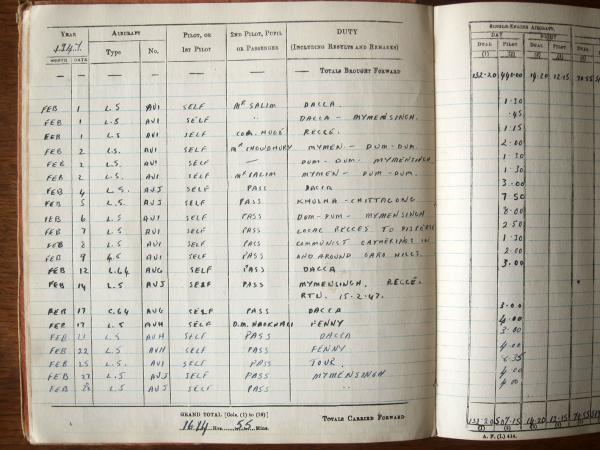 YEAR AIRCRAFT PILOT, OR 2ND PILOT, PUPIL DUTY
1947. Type No. 1ST PILOT OR PASSENGER (INCLUDING RESULTS AND REMARKS)
MONTH DATE
— — — — — — — TOTALS BROUGHT FORWARD
FEB 1 L.5 AVI SELF Mr SALIM DACCA.
FEB 1 L.5 AVI SELF " DACCA - MYMENSINGH.
FEB 1 L.5 AVI SELF RECCE.
FEB 2 L.5. AVI SELF Mr CHOWDHURY MYMEN - DUM-DUM.
FEB 2 L.5. AVI SELF — DUM-DUM. MYMENSINGH.
FEB 2 L.5. AVI SELF Mr SALIM MYMEN - DUM-DUM.
FEB 4 L.5. AVJ SELF PASS DACCA
FEB 5 L.5. AVJ SELF PASS KHULNA - CHITTAGONG
FEB 6 L.5 AVI SELF PASS DUM-DUM - MYMENSINGH
FEB 7 L.5 AVI SELF PASS LOCAL RECCES TO DISPERSE
FEB 8 L.5 AVI SELF PASS COMMUNIST GATHERINGS IN
FEB 9 AVI SELF PASS AND AROUND GARO HILLS.
FEB 12 AUG SELF PASS DACCA
FEB 14 L.5 AVJ SELF PASS MYMENSINGH. RECCE.
RTN. 15.2.47.
FEB 17 C.64 AUG SELF PASS DACCA
FEB L.5 SELF D.M. NAOKHALI FENNY
FEB 21 L.5 SELF PASS DACCA
FEB 22 L.5 SELF PASS FENNY
FEB 25 L.5. AVJ SELF PASS TOUR.
FEB 27 L.5 AVJ SELF PASS MYMENSINGH
FEB 28 L.5 AVJ SELF PASS "
GRAND TOTAL [Cols. (1) to (10)] TOTALS CARRIED FORWARD
1614 Hrs. 55 Mins.
SINGLE-ENGINE AIRCRAFT.
DAY NIGHT
DUAL PILOT DUAL PILOT DUAL
(1) (2) (3) (4) (5)
132.20 440.00 14.20 12.15 70.55
1.30
.45
1.15
2.00
1.30
1.30
3.00
7.50
8.00
2.50
1.30
2.00
3.00
3.00
4.00
3.00
4.00
8.35
4.00
4.00
132.20 507.15 14.20 12.15 70.55
(1) (2) (3) (4) (5)
A. F. (I.) 414.